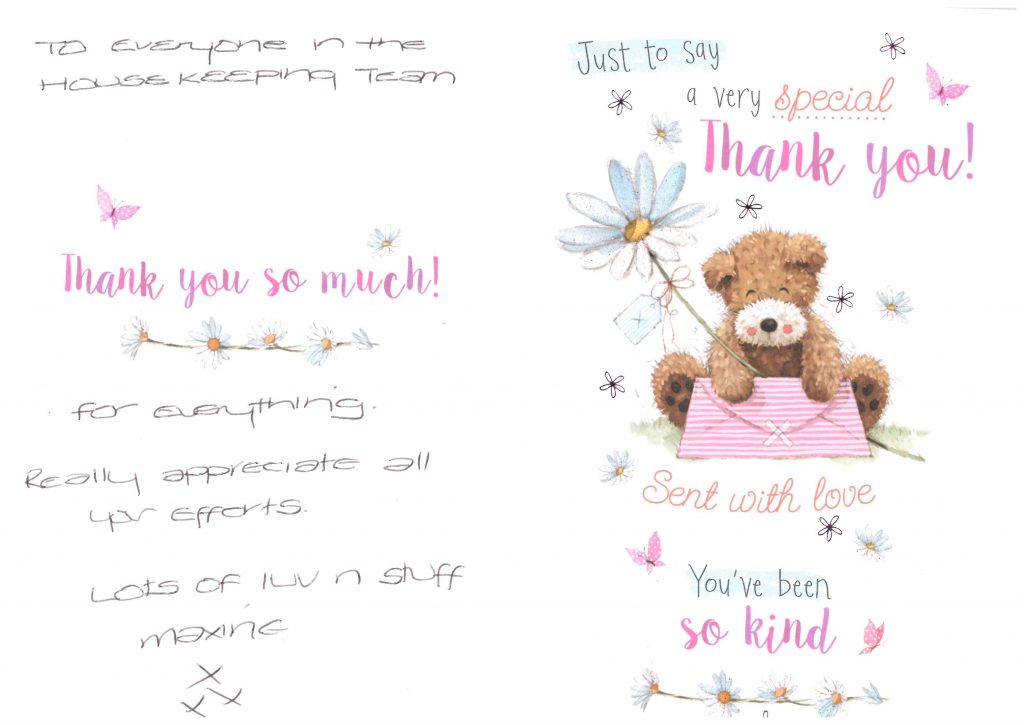 To Everyone in the
Housekeeping Team
Thank you so much!
for Everything.
Really appreciate all
yor Efforts.
Lots of luv n stuff
Maxine
X
X X
Just to say
a very special
Thank you!
Sent with love
You've been
so kind